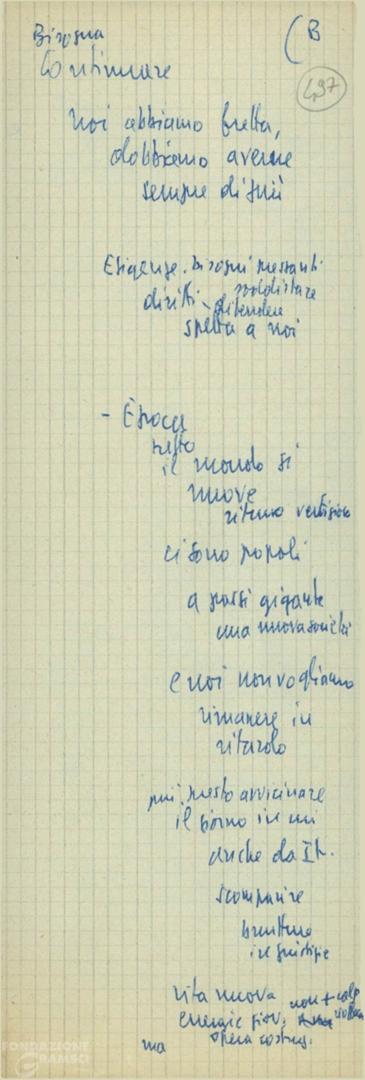 Bisogna
Continuare
(B
497
noi abbiamo fretta,
dobbiamo averne
sempre di più
Esigenze. bisogni pressanti
soddisfare
diritti - difendere
spetta a noi
- Epoca
tutto
il mondo si
muove
ritmo vertigin
ci sono popoli
a passi gigante
una nuova società
e noi non vogliamo
rimanere in
ritardo
più presto avvicinare
il giorno in cui
anche da It.
scomparire
brutture
ingiustizie
vita nuova
non +
energie giov.
opera costruz.
ma
FONDAZIONE
GRAMSCI